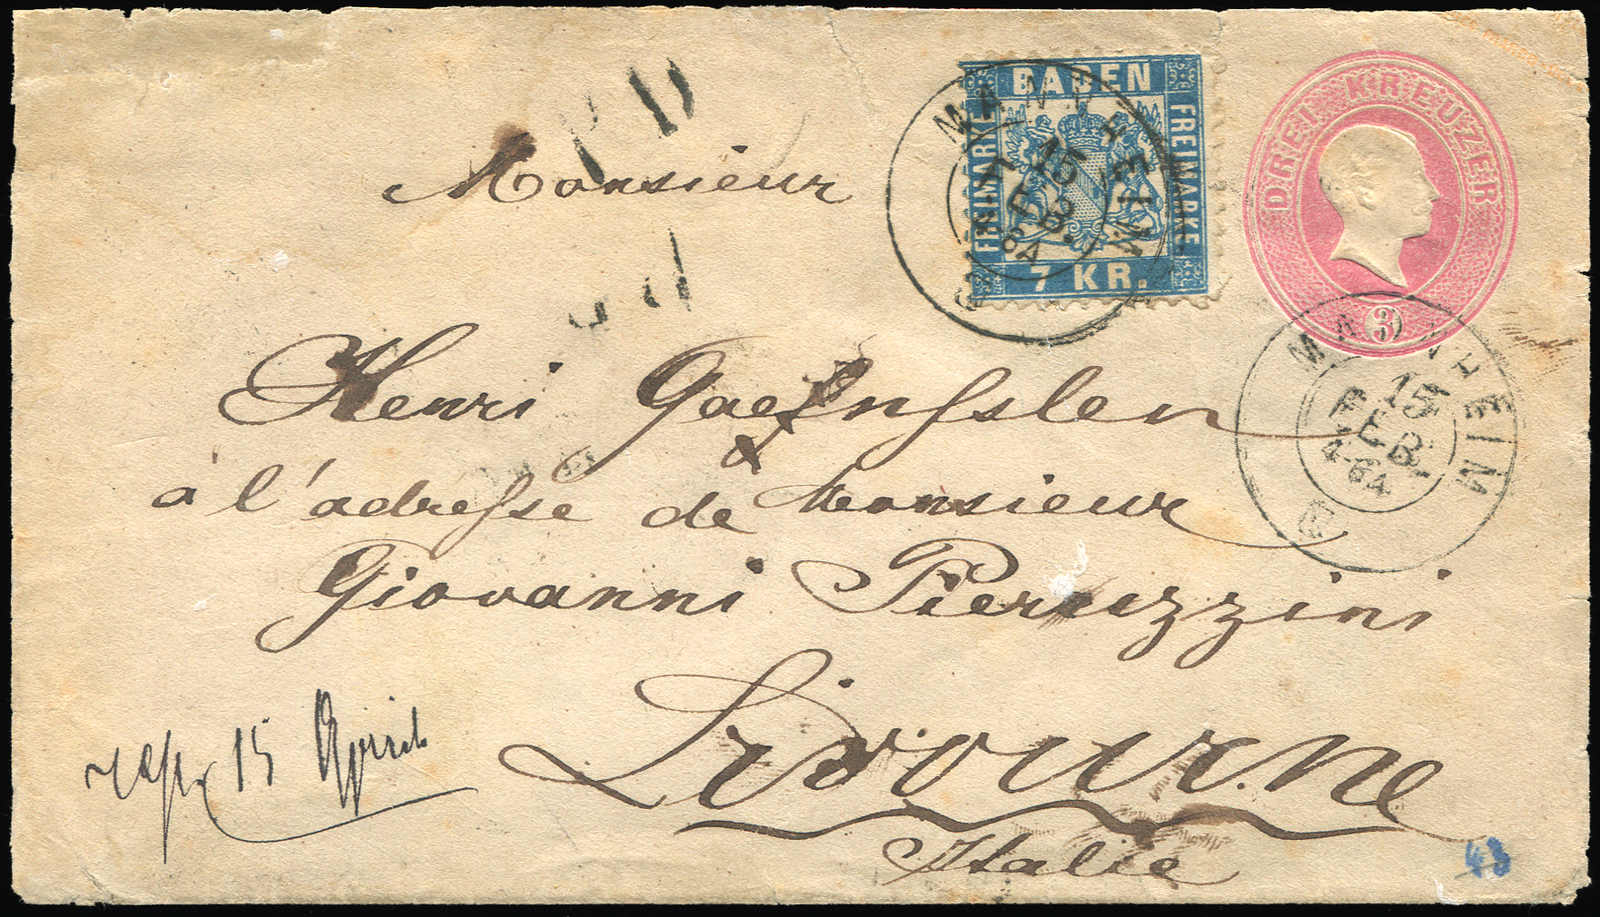 P D
BADEN
FREIMARKE
FREIMARKE
7 KR.
DREI KREUZER
3
MANNHEIM
15
FEB.
MANNHEIM
15
FEB.
4-6A
Monsieur
Henri Gaensslen
à l'adresse de Monsieur
Giovanni Pieruzzini
Livourne
Italie
15 April
48